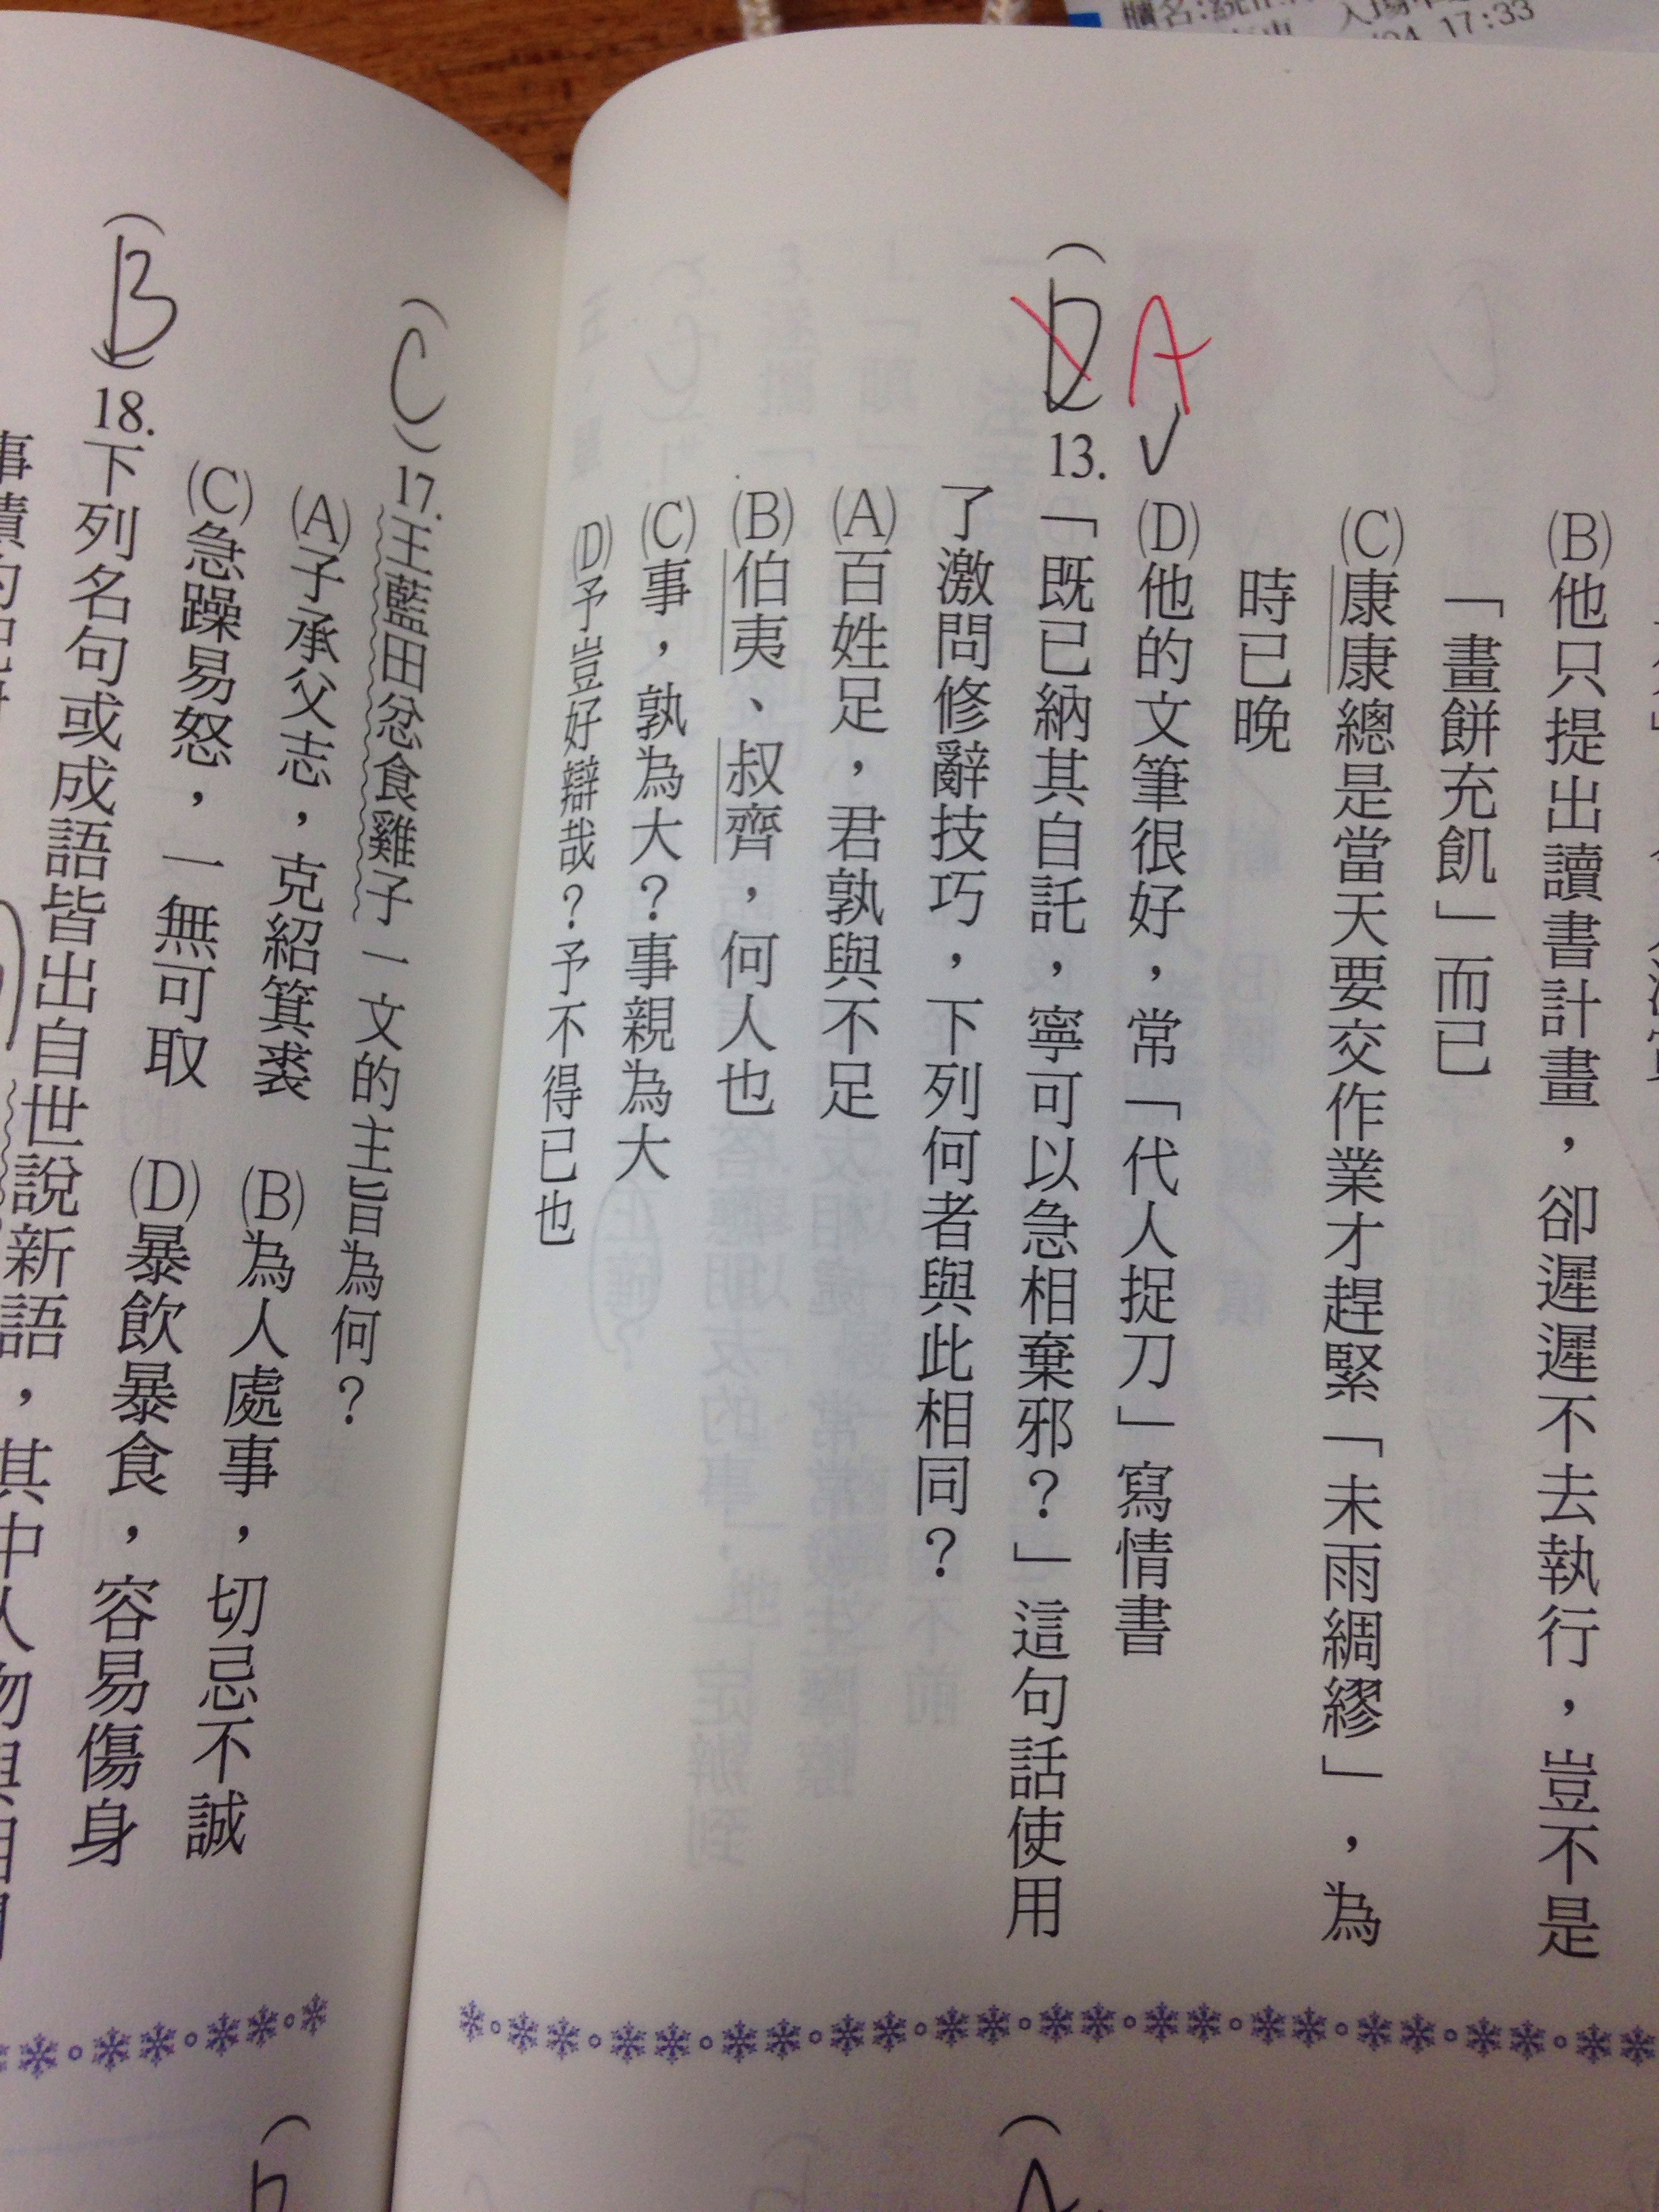 17:33
(B)他只提出讀書計畫，卻遲遲不去執行，豈不是
「畫餅充飢」而已
(C)康康總是當天要交作業才趕緊「未雨綢繆」，為
時已晚
(D)他的文筆很好，常「代人捉刀」寫情書
A
(D)13.「既已納其自託，寧可以急相棄邪？」這句話使用
了激問修辭技巧，下列何者與此相同？
(A)百姓足，君孰與不足
(B)伯夷、叔齊，何人也
(C)事，孰為大？事親為大
(D)予豈好辯哉？予不得已也
(C)17.王藍田忿食雞子一文的主旨為何？
(A)子承父志，克紹箕裘 (B)為人處事，切忌不誠
(C)急躁易怒，一無可取 (D)暴飲暴食，容易傷身
(B)18.下列名句或成語皆出自世說新語，其中人物與相關